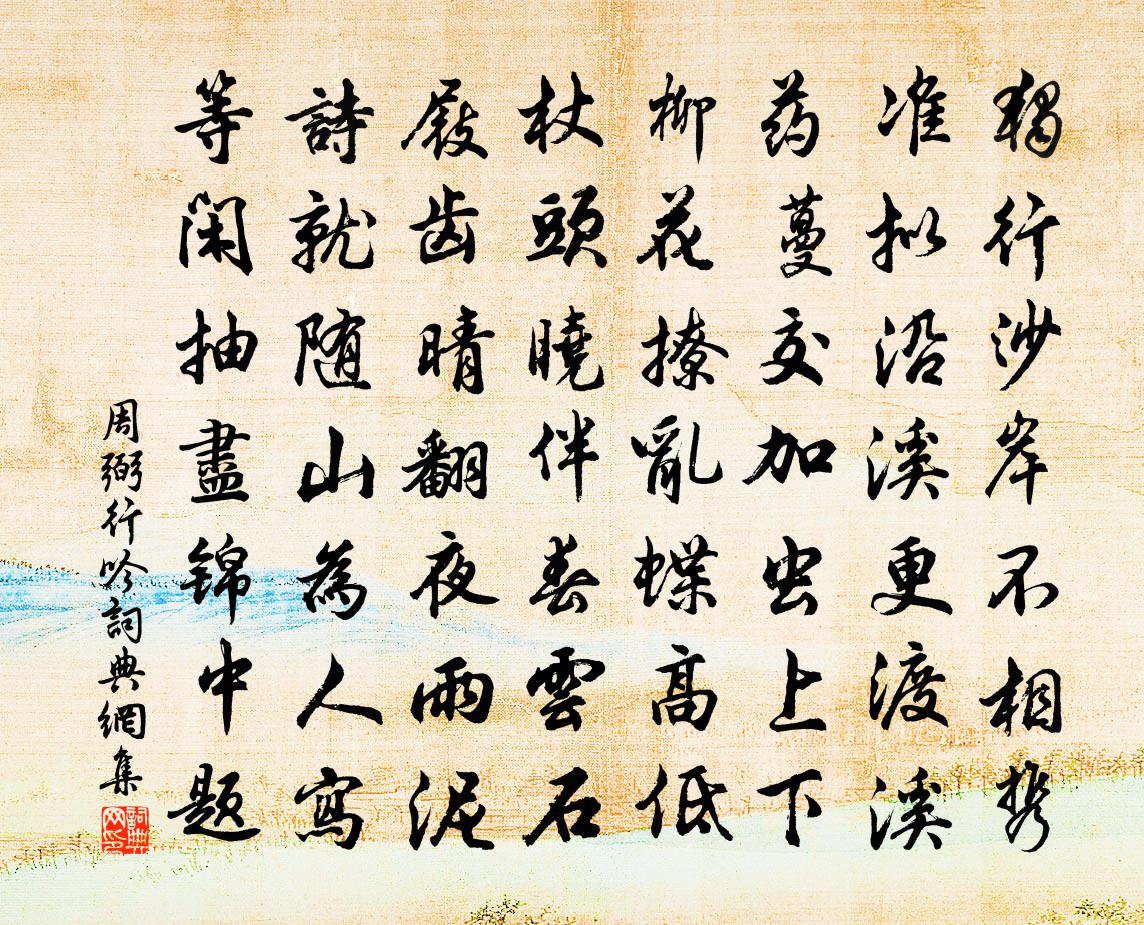 獨行沙岸不相携
准拟沿溪更渡溪
药蔓交加虫上下
柳花撩亂蝶高低
杖頭曉伴春雲石
屐齿晴翻夜雨泥
詩就随山為人寫
等闲抽盡锦中题
周弼行吟詞典網集
詞典网印